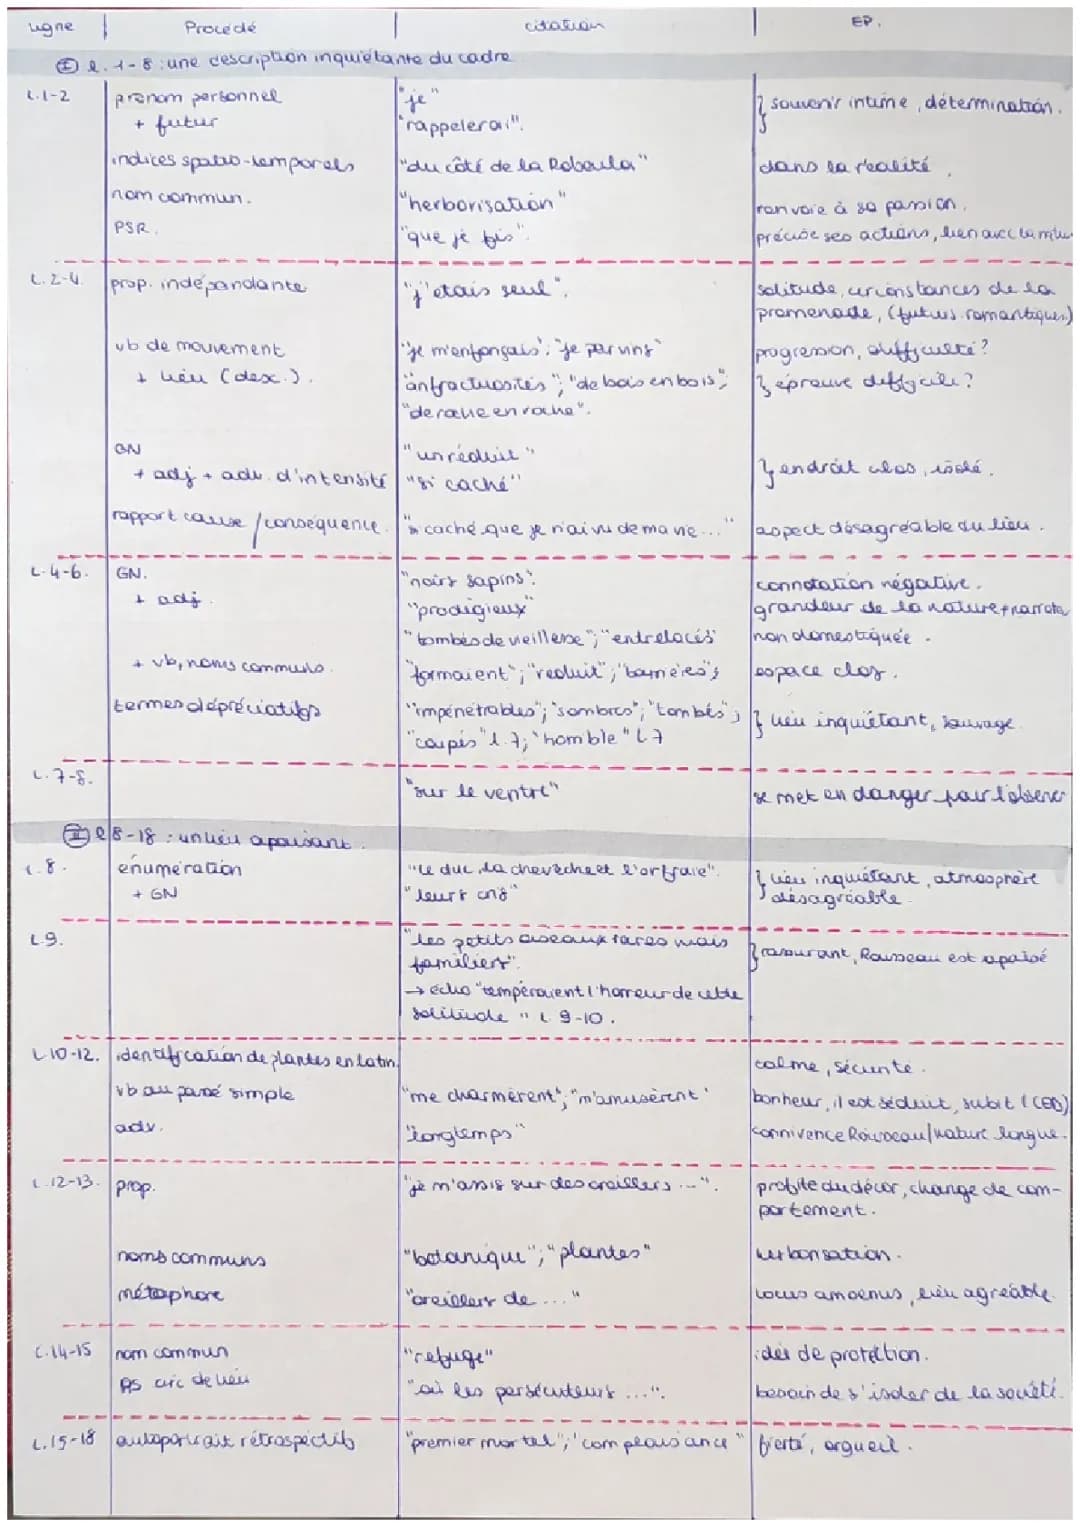 Ligne Procédé citation EP.
I l. 1-8 : une description inquiétante du cadre
L.1-2 pronom personnel "je" } souvenir intime, détermination.
+ futur "rappelerai".
indices spatio-temporels "du côté de la Robaila" dans la réalité.
nom commun. "herborisation" renvoie à sa passion.
PSR. "que je fis". précise ses actions, lien avec la
L.2-4. prop. indépendante "j'étais seul". solitude, circonstances de la
promenade, (futurs romantiques)
vb de mouvement "je m'enfonçais"; "je parvins" progression, difficulté?
+ lieu (desc.). "anfractuosités"; "de bois en bois"; } épreuve difficile?
"de roche en roche".
GN "un réduit"
+ adj + adv. d'intensité "si caché" } endroit clos, isolé.
rapport cause/conséquence. "si caché que je n'ai vu de ma vie..." aspect désagréable du lieu.
L.4-6. GN. "noirs sapins". connotation négative.
+ adj. "prodigieux" grandeur de la nature +
"tombés de vieillesse"; "entrelacés" non domestiquée.
+ vb, noms communs. "formaient"; "réduit"; "barrières"; espace clos.
termes dépréciatifs "impénétrables"; "sombres"; "tombés"; } lieu inquiétant, sauvage.
"coupés" l.7; "horrible" L7
L.7-8. "sur le ventre" se met en danger pour l'observer
II l 8-18 : un lieu apaisant.
L.8. énumération "le duc, la chevêche et l'orfraie". } lieu inquiétant, atmosphère
+ GN "leurs cris" désagréable.
L9. "les petits oiseaux rares mais
familiers". } rassurant, Rousseau est apaisé
→ écho "tempéraient l'horreur de cette
solitude" L 9-10.
L10-12. identification de plantes en latin. calme, sécurité.
vb au passé simple "me charmèrent"; "m'amusèrent" bonheur, il est séduit, subit (COD)
adv. "longtemps" connivence Rousseau/nature longue.
L.12-13. prop. "je m'assis sur des oreillers ...". profite du décor, change de com-
portement.
noms communs "botanique"; "plantes" herborisation.
métaphore "oreillers de ..." locus amoenus, lieu agréable.
L.14-15 nom commun "refuge" idée de protection.
PS circ de lieu "où les persécuteurs ...". besoin de s'isoler de la société.
L.15-18 autoportrait rétrospectif "premier mortel"; "complaisance" fierté, orgueil.